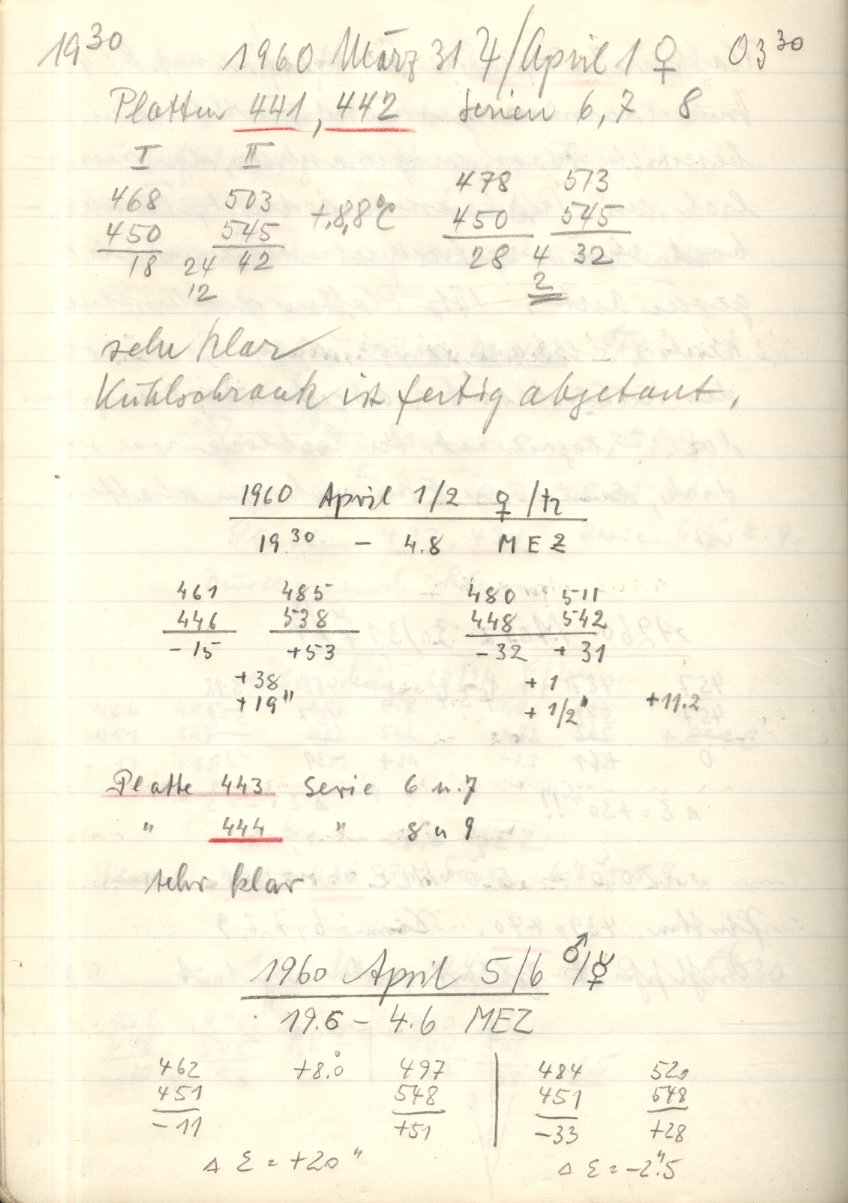 19 30 1960 März 31 ♃/April 1 ♀ 03 30
Platten 441, 442 Serien 6, 7 8
I II
468 503 +8,8°C 478 513
450 545 450 545
18 24 42 28 4 32
12 2
sehr klar
Kühlschrank ist fertig abgetaut.
1960 April 1/2 ♀/♄
19.30 – 4.8 MEZ
461 485 480 511
446 538 448 542
-15 +53 -32 +31
+38 +1
+19" +1/2" +11.2
Platte 443 Serie 6 u. 7
" 444 " 8 u 9
sehr klar
1960 April 5/6 ♂/☿
19.6 – 4.6 MEZ
462 +8.0 497 484 520
451 548 451 548
-11 +51 -33 +28
Δ Ɛ = +20" Δ Ɛ = -2".5